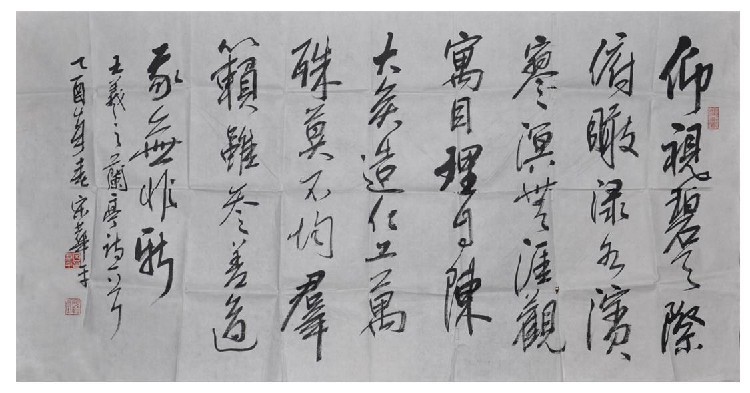 仰視碧天際
俯瞰淥水濱
寥溟無涯觀
寓目理自陳
大矣造化工萬
殊莫不均羣
籟雖參差適
我無非新
王羲之蘭亭詩一首
乙酉年春宋華平